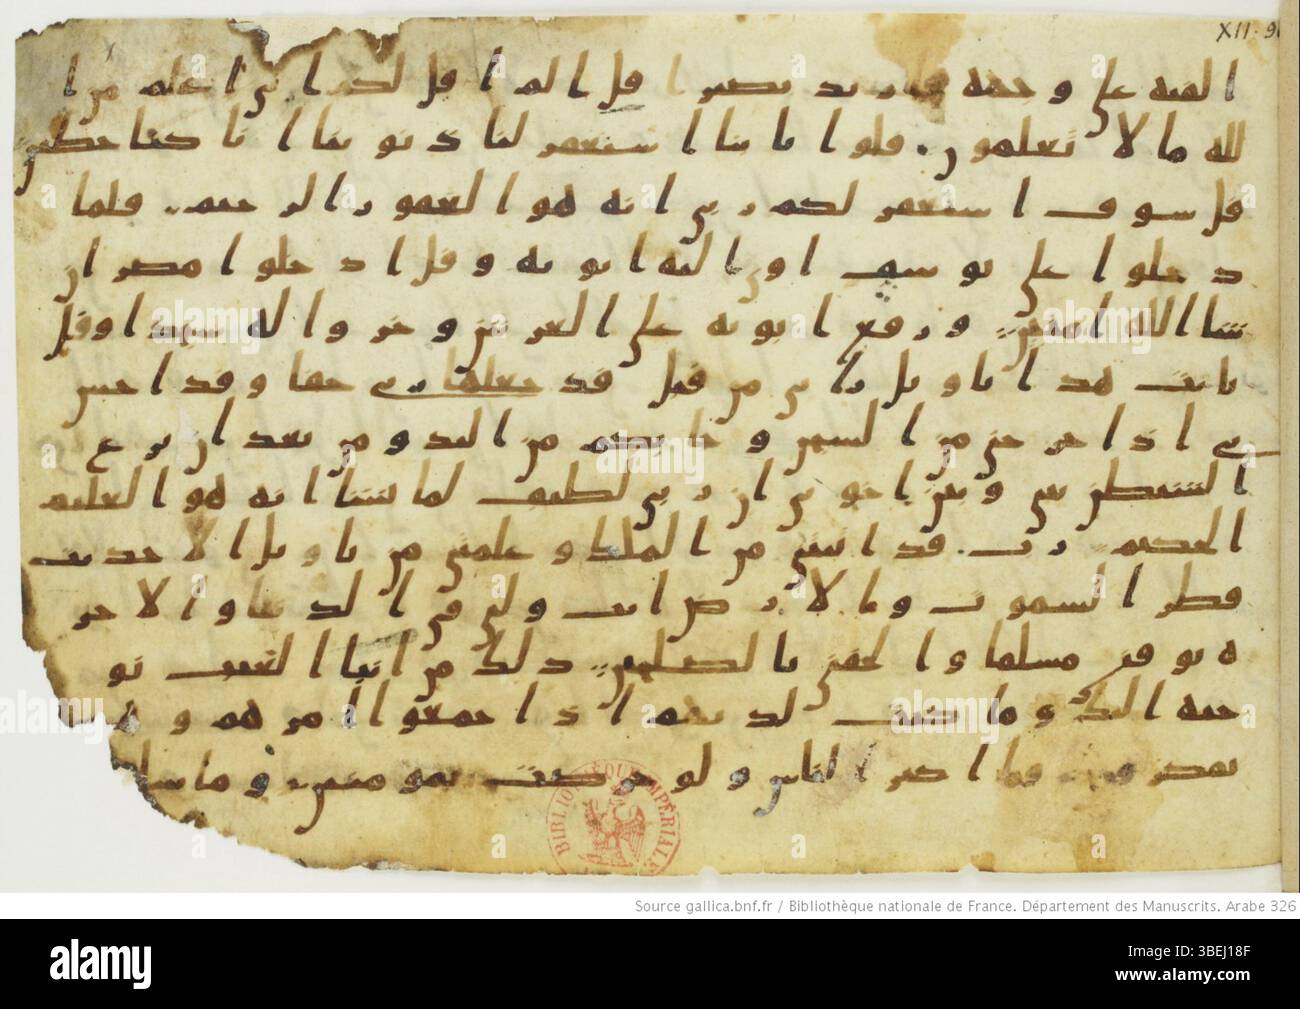 XII. 96
القيه على وجهه فارتد بصيرا قل الم اقل لكم انى اعلم من ا
لله ما لا تعلمون قلوا يابنا استغفر لنا ذنوبنا انا كنا خطين
قل سوف استغفر لكم ربى انه هو الغفور الرحيم فلما
دخلوا على يوسف اوى اليه ابويه وقل ادخلوا مصر ان
شا الله امنين ورفع ابويه على العرش وخروا له سجدا وقل
يابت هدا تاويل رياى من قبل قد جعلها ربى حقا وقد احسن
بى اذ اخرجنى من السجن وجا بكم من البدو من بعد ان نزغ
الشيطن بينى وبين اخوتى ان ربى لطيف لما يشا انه هو العليم
الحكيم رب قد اتيتنى من الملك وعلمتنى من تاويل الاحديث
فطر السموت والارض انت ولى فى الدنيا والاخر
ه توفنى مسلما والحقنى بالصلحين ذلك من انبا الغيب نو
حيه اليك وما كنت لديهم اذ اجمعوا امرهم وهم
يمكرون وما اكثر الناس ولو حرصت بمومنين وما تسلهم
BIBLIOTHÈQUE IMPÉRIALE
Source gallica.bnf.fr / Bibliothèque nationale de France. Département des Manuscrits. Arabe 326
alamy
Image ID: 3BEJ18F
www.alamy.com